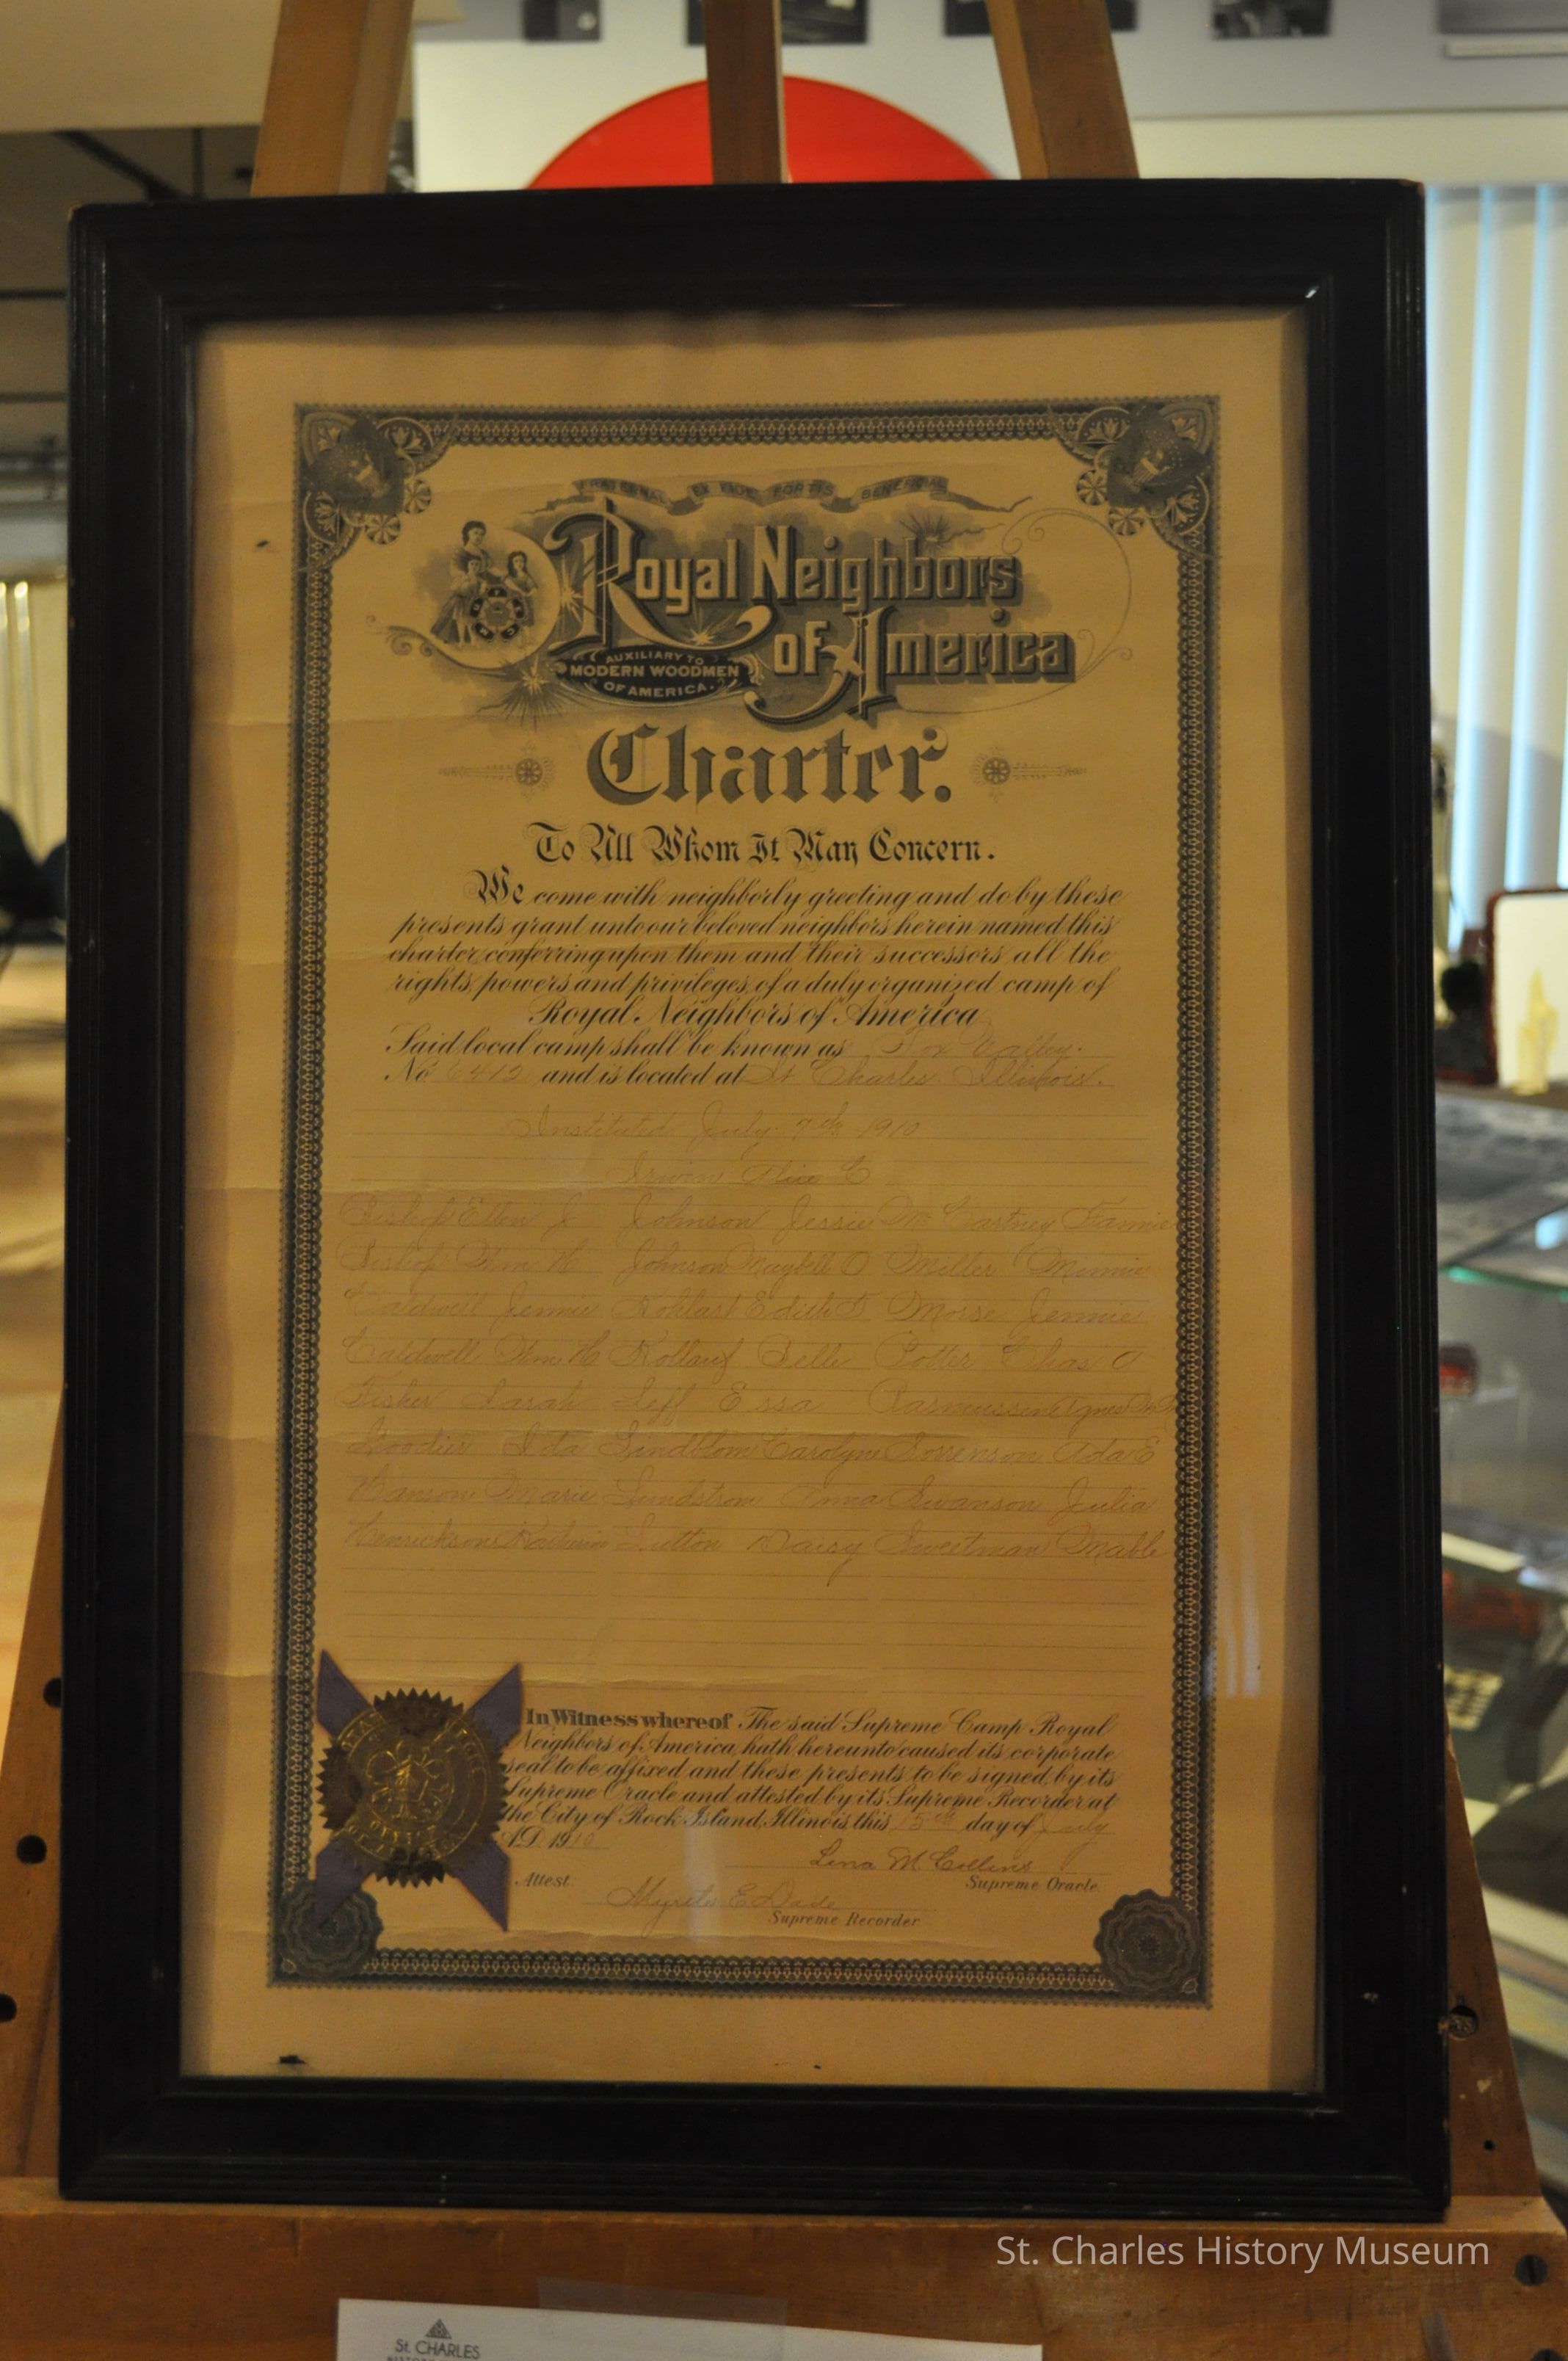 FRATERNAL EX FIDE FORTIS BENEFICIAL
Royal Neighbors
of America
AUXILIARY TO
MODERN WOODMEN
OF AMERICA.
Charter.
To All Whom It May Concern.
We come with neighborly greeting and do by these
presents grant unto our beloved neighbors herein named this
charter, conferring upon them and their successors all the
rights, powers and privileges, of a duly organized camp of
Royal Neighbors of America
Said local camp shall be known as Fox Valley.
No 6412 and is located at St Charles Illinois.
Instituted July 7th 1910
Irwin Alice C
Bishop Ellen J Johnson Jessie McCartney Fannie
Bishop Wm H Johnson Maybell O Miller Minnie
Caldwell Jennie Edith Morse Jennie
Caldwell Wm H Belle Potter Chas A
Fisher Sarah Leff Essa Rasmussen Agnes
Ida Lindblom Carolyn Sorrenson Ada E
Hanson Marie Lundstrom Anna Swanson Julia
Henrickson Sutton Daisy Sweetman Mable
In Witness whereof The said Supreme Camp Royal
Neighbors of America, hath hereunto caused its corporate
seal to be affixed and these presents to be signed by its
Supreme Oracle and attested by its Supreme Recorder at
the City of Rock Island, Illinois, this 15th day of July
A.D. 1910
Lena M Collins
Attest Supreme Oracle
Myrtle E Dade
Supreme Recorder
St. Charles History Museum
St. CHARLES